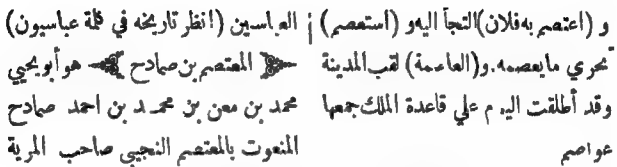 و (اعتصم به فلان) التجأ اليه و (أستعصم)
تحري ما يعصمه. و(العاصمة) لقب المدينة
وقد أطلقت اليوم علي قاعدة الملك جمعها
عواصم
العباسين (انظر تاريخه في كلمة عباسيون)
المعتصم بن صمادح هو أبو يحيي
محمد بن معن بن محمد بن احمد صمادح
المنعوت بالمعتصم النجيبي صاحب المرية